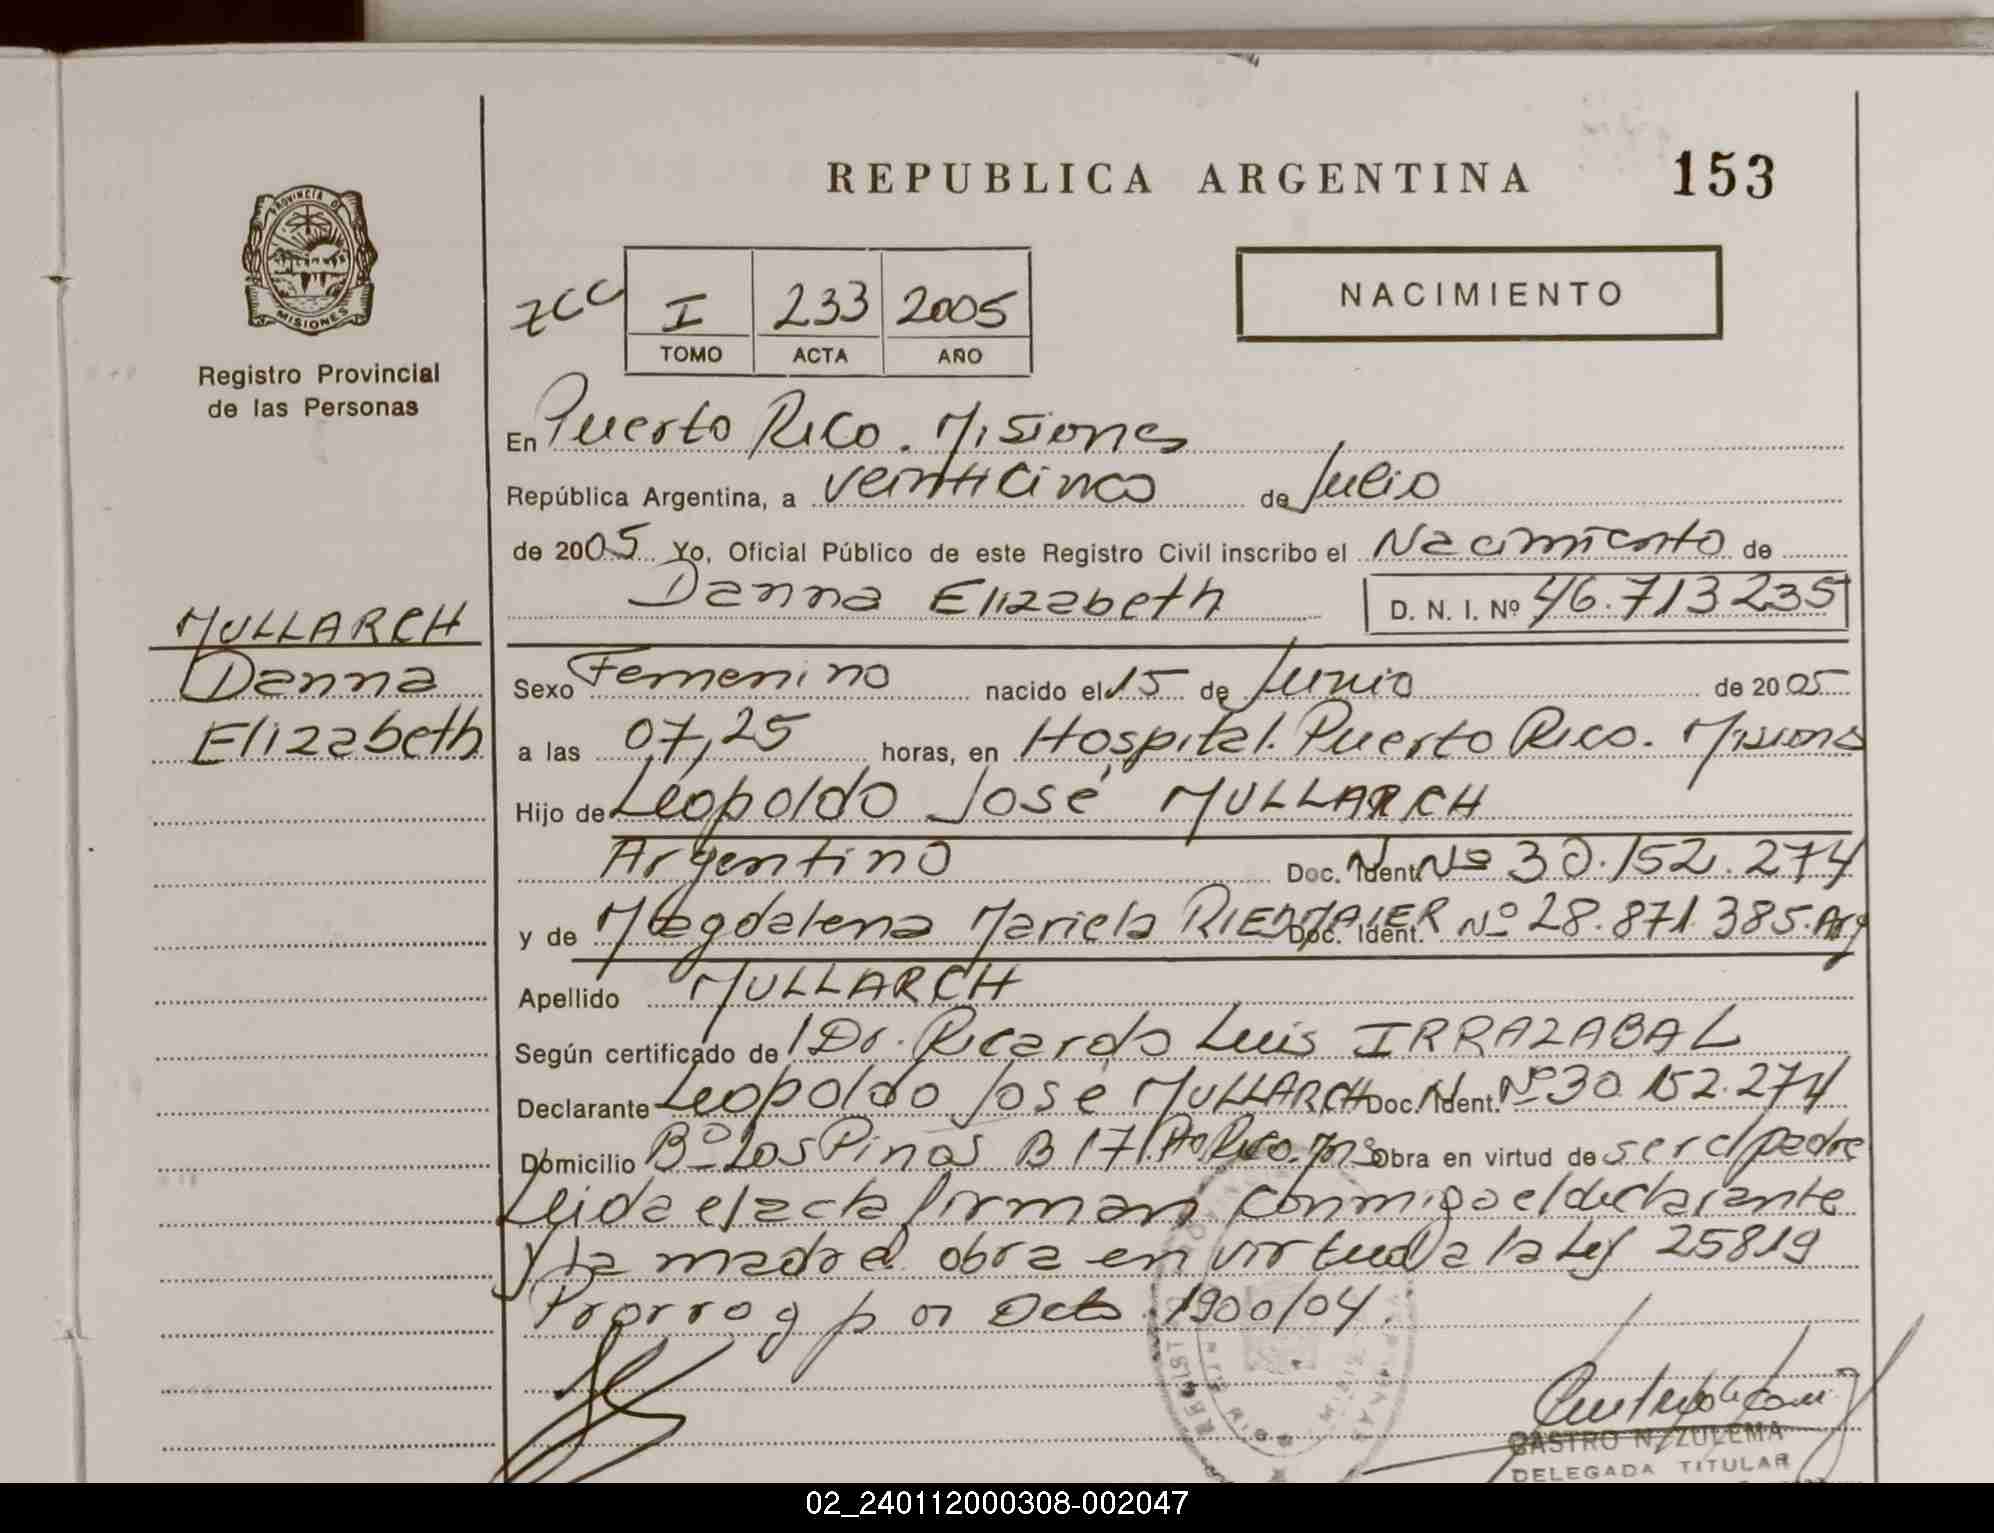 REPUBLICA ARGENTINA 153
PROVINCIA DE
MISIONES
Registro Provincial
de las Personas
I 233 2005
TOMO ACTA AÑO
NACIMIENTO
En Puerto Rico. Misiones
República Argentina, a veinticinco de Julio
de 2005 Yo, Oficial Público de este Registro Civil inscribo el Nacimiento de
Danna Elizabeth D. N. I. Nº 46.713235
MULLARCH
Danna
Elizabeth
Sexo Femenino nacido el 15 de Junio de 2005
a las 07,25 horas, en Hospital. Puerto Rico. Misiones
Hijo de Leopoldo José MULLARCH
Argentino Doc. Ident. Nº 30.152.274
y de Magdalena Mariela RIEDMAIER Doc. Ident. Nº 28.871.385. Arg
Apellido MULLARCH
Según certificado de Dr. Ricardo Luis IRRAZABAL
Declarante Leopoldo José MULLARCH Doc. Ident. Nº 30.152.274
Domicilio Bº Los Pinos B 17 Pto Rico. Mns Obra en virtud de ser el padre
Leida el acta firman conmigo el declarante
y la madre. obra en virtud a la Ley 25819
Prorrog por Dcto 1900/04.
CASTRO N. ZULEMA
DELEGADA TITULAR
02_240112000308-002047